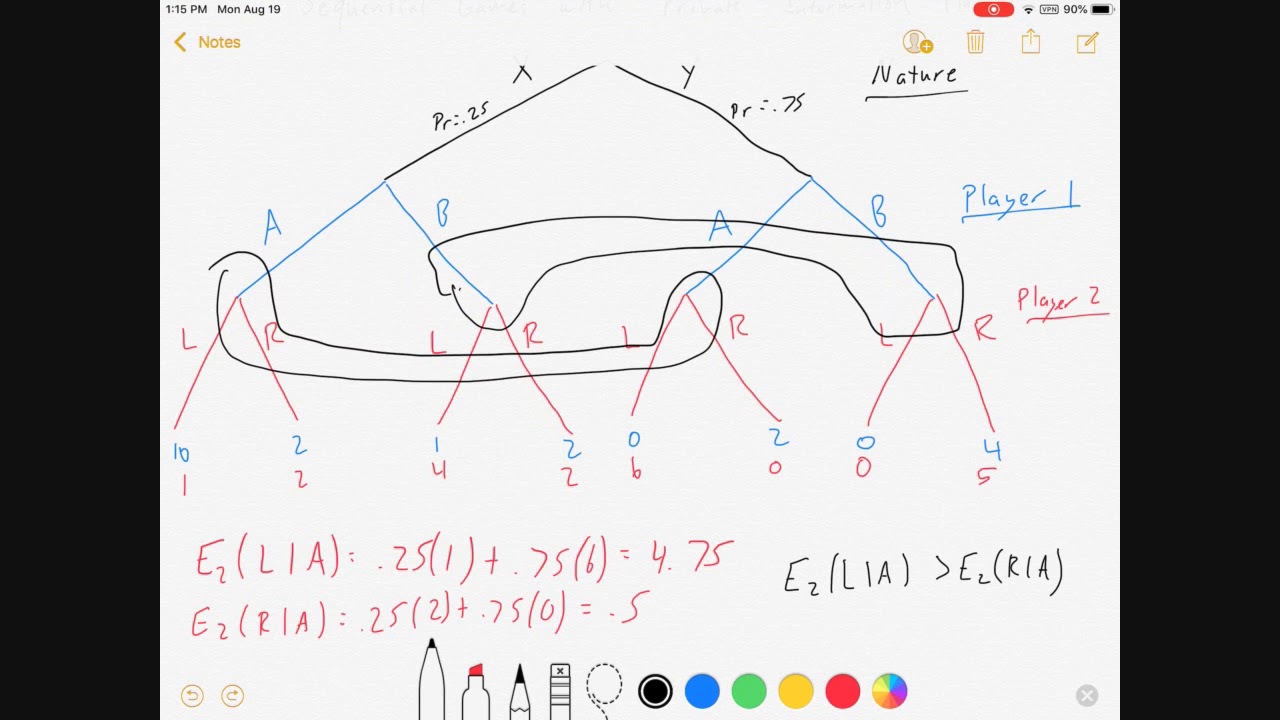 1:15 PM Mon Aug 19 VPN 90%
Sequential Games with Private Information
Notes
X Y Nature
Pr=.25 Pr=.75
A B A B Player 1
L R L R L R L R Player 2
10 2 1 2 0 2 0 4
1 2 4 2 6 0 0 5
E2(L|A)= .25(1)+.75(6)=4.75
E2(L|A) >E2(R|A)
E2(R|A)=.25(2)+.75(0)=.5